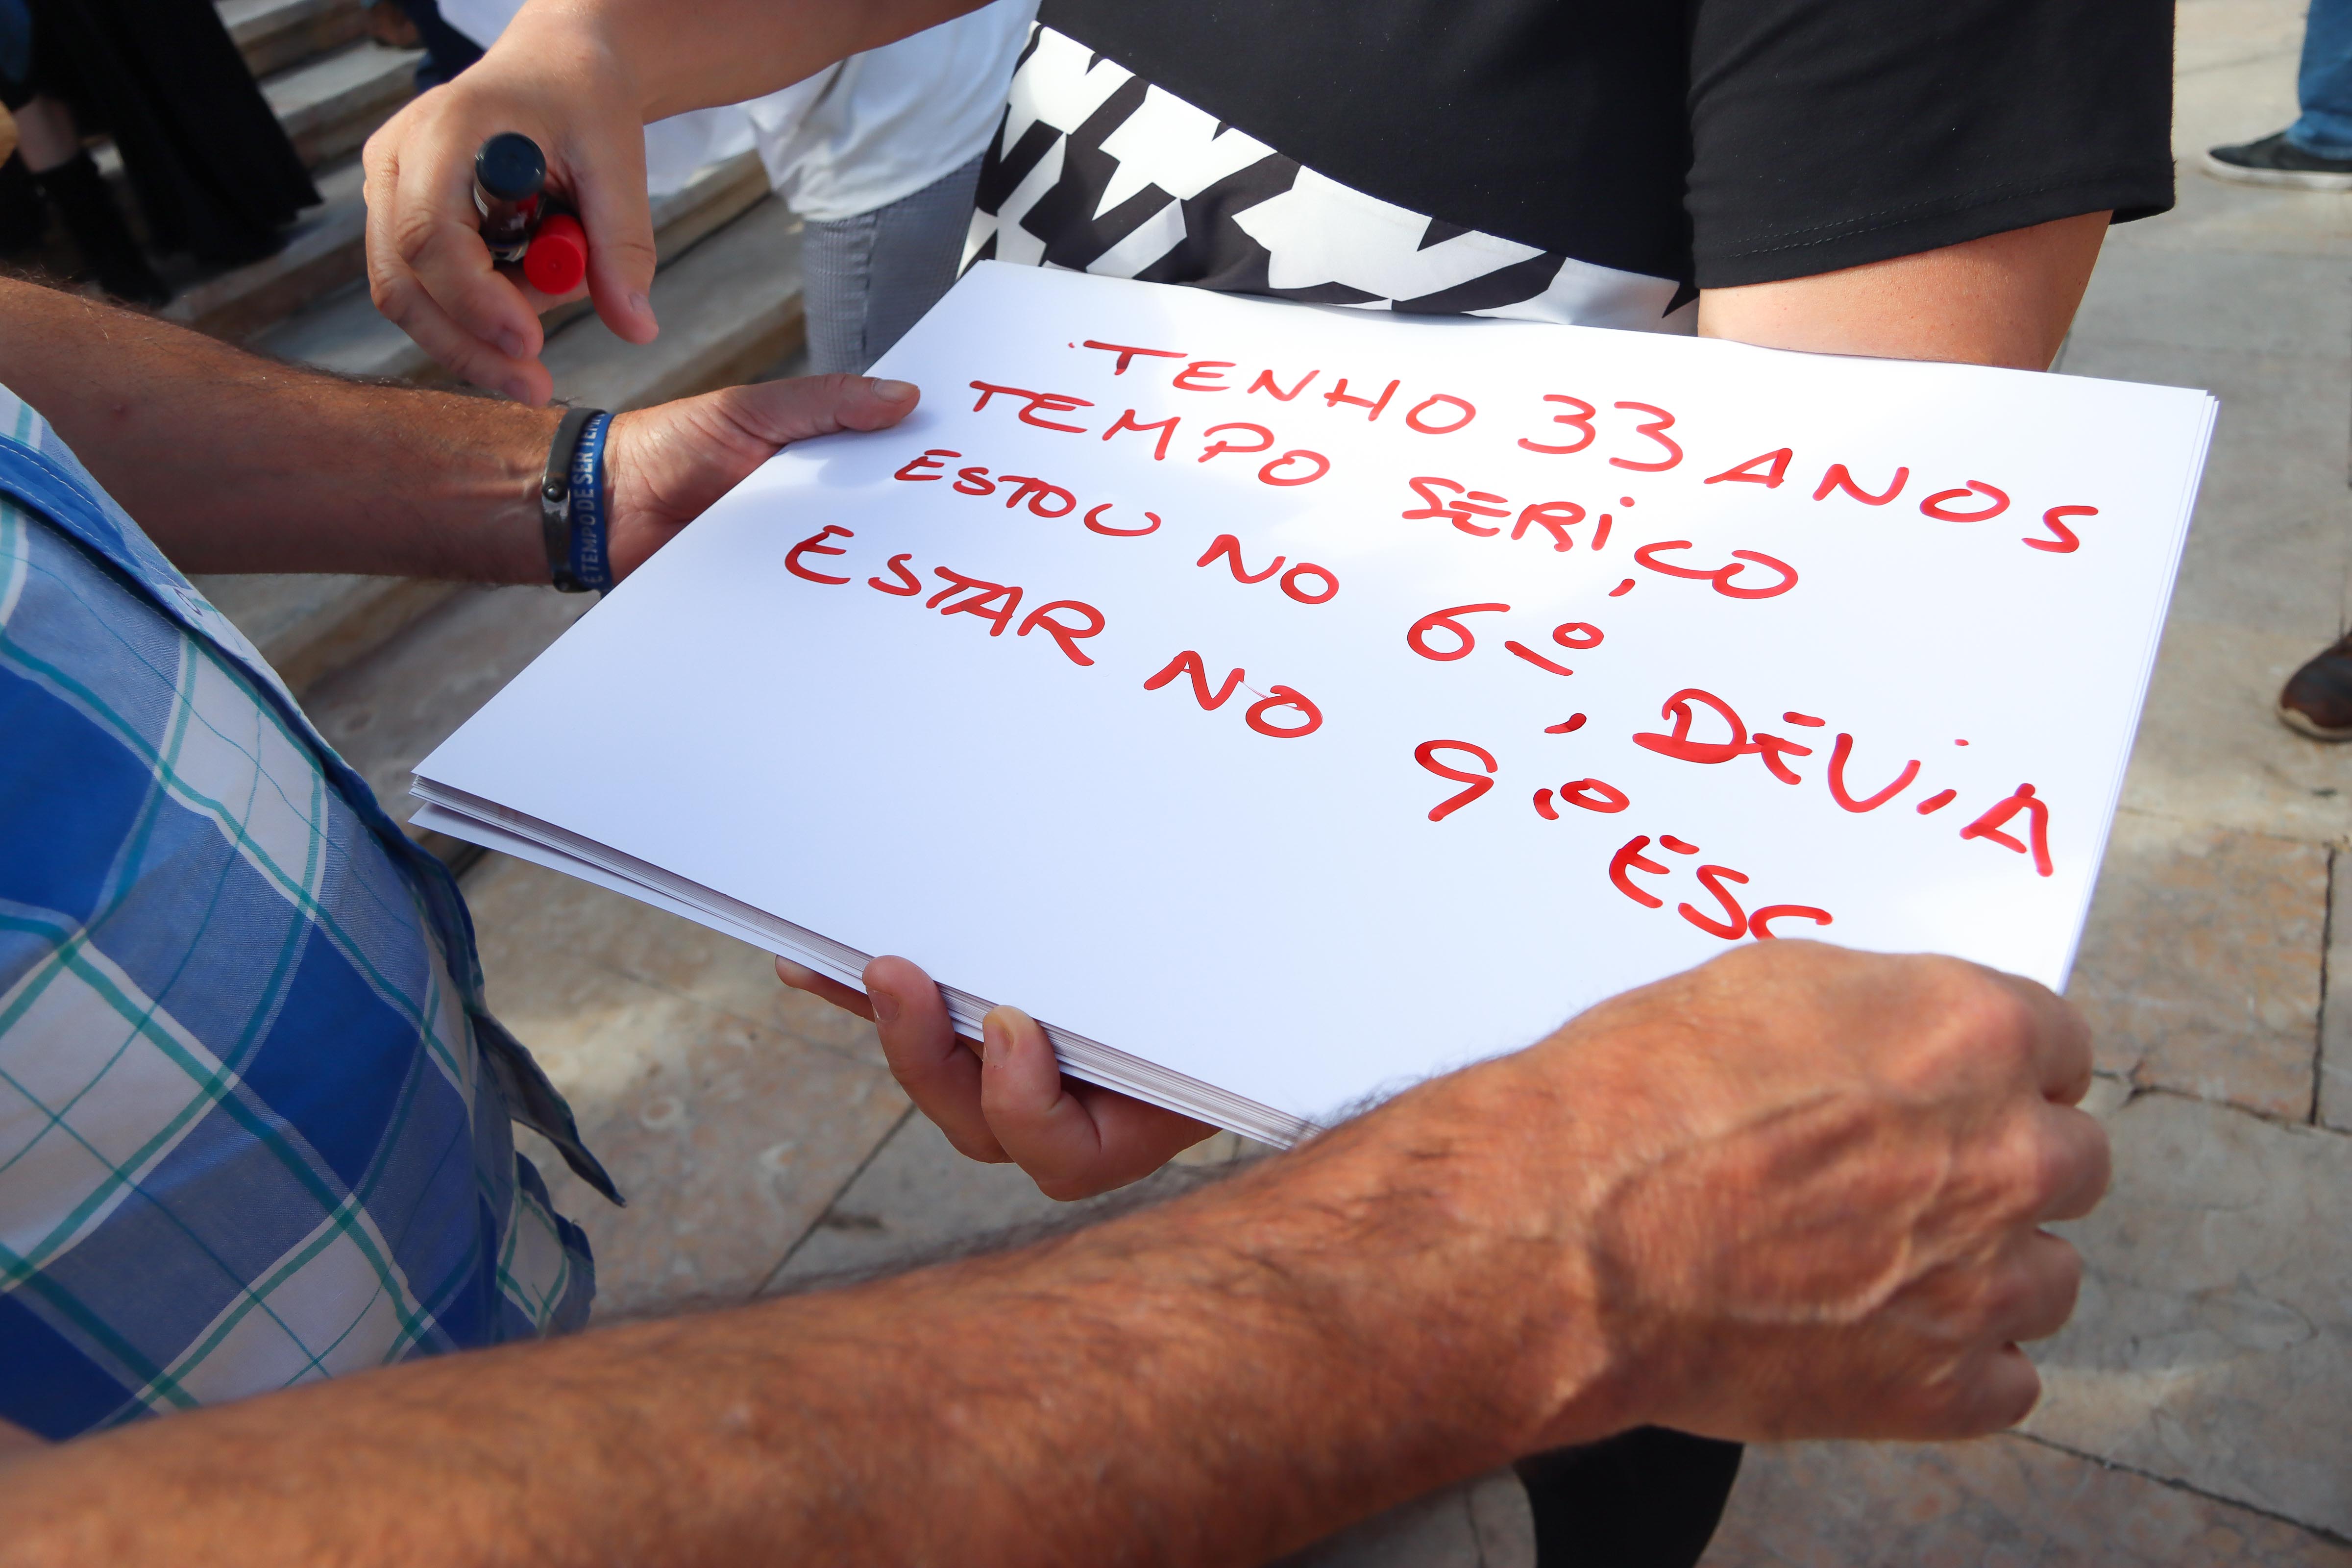 TENHO 33 ANOS
TEMPO SERIÇO
ESTOU NO 6º, DEVIA
ESTAR NO 9.º ESC
É TEMPO DE SER